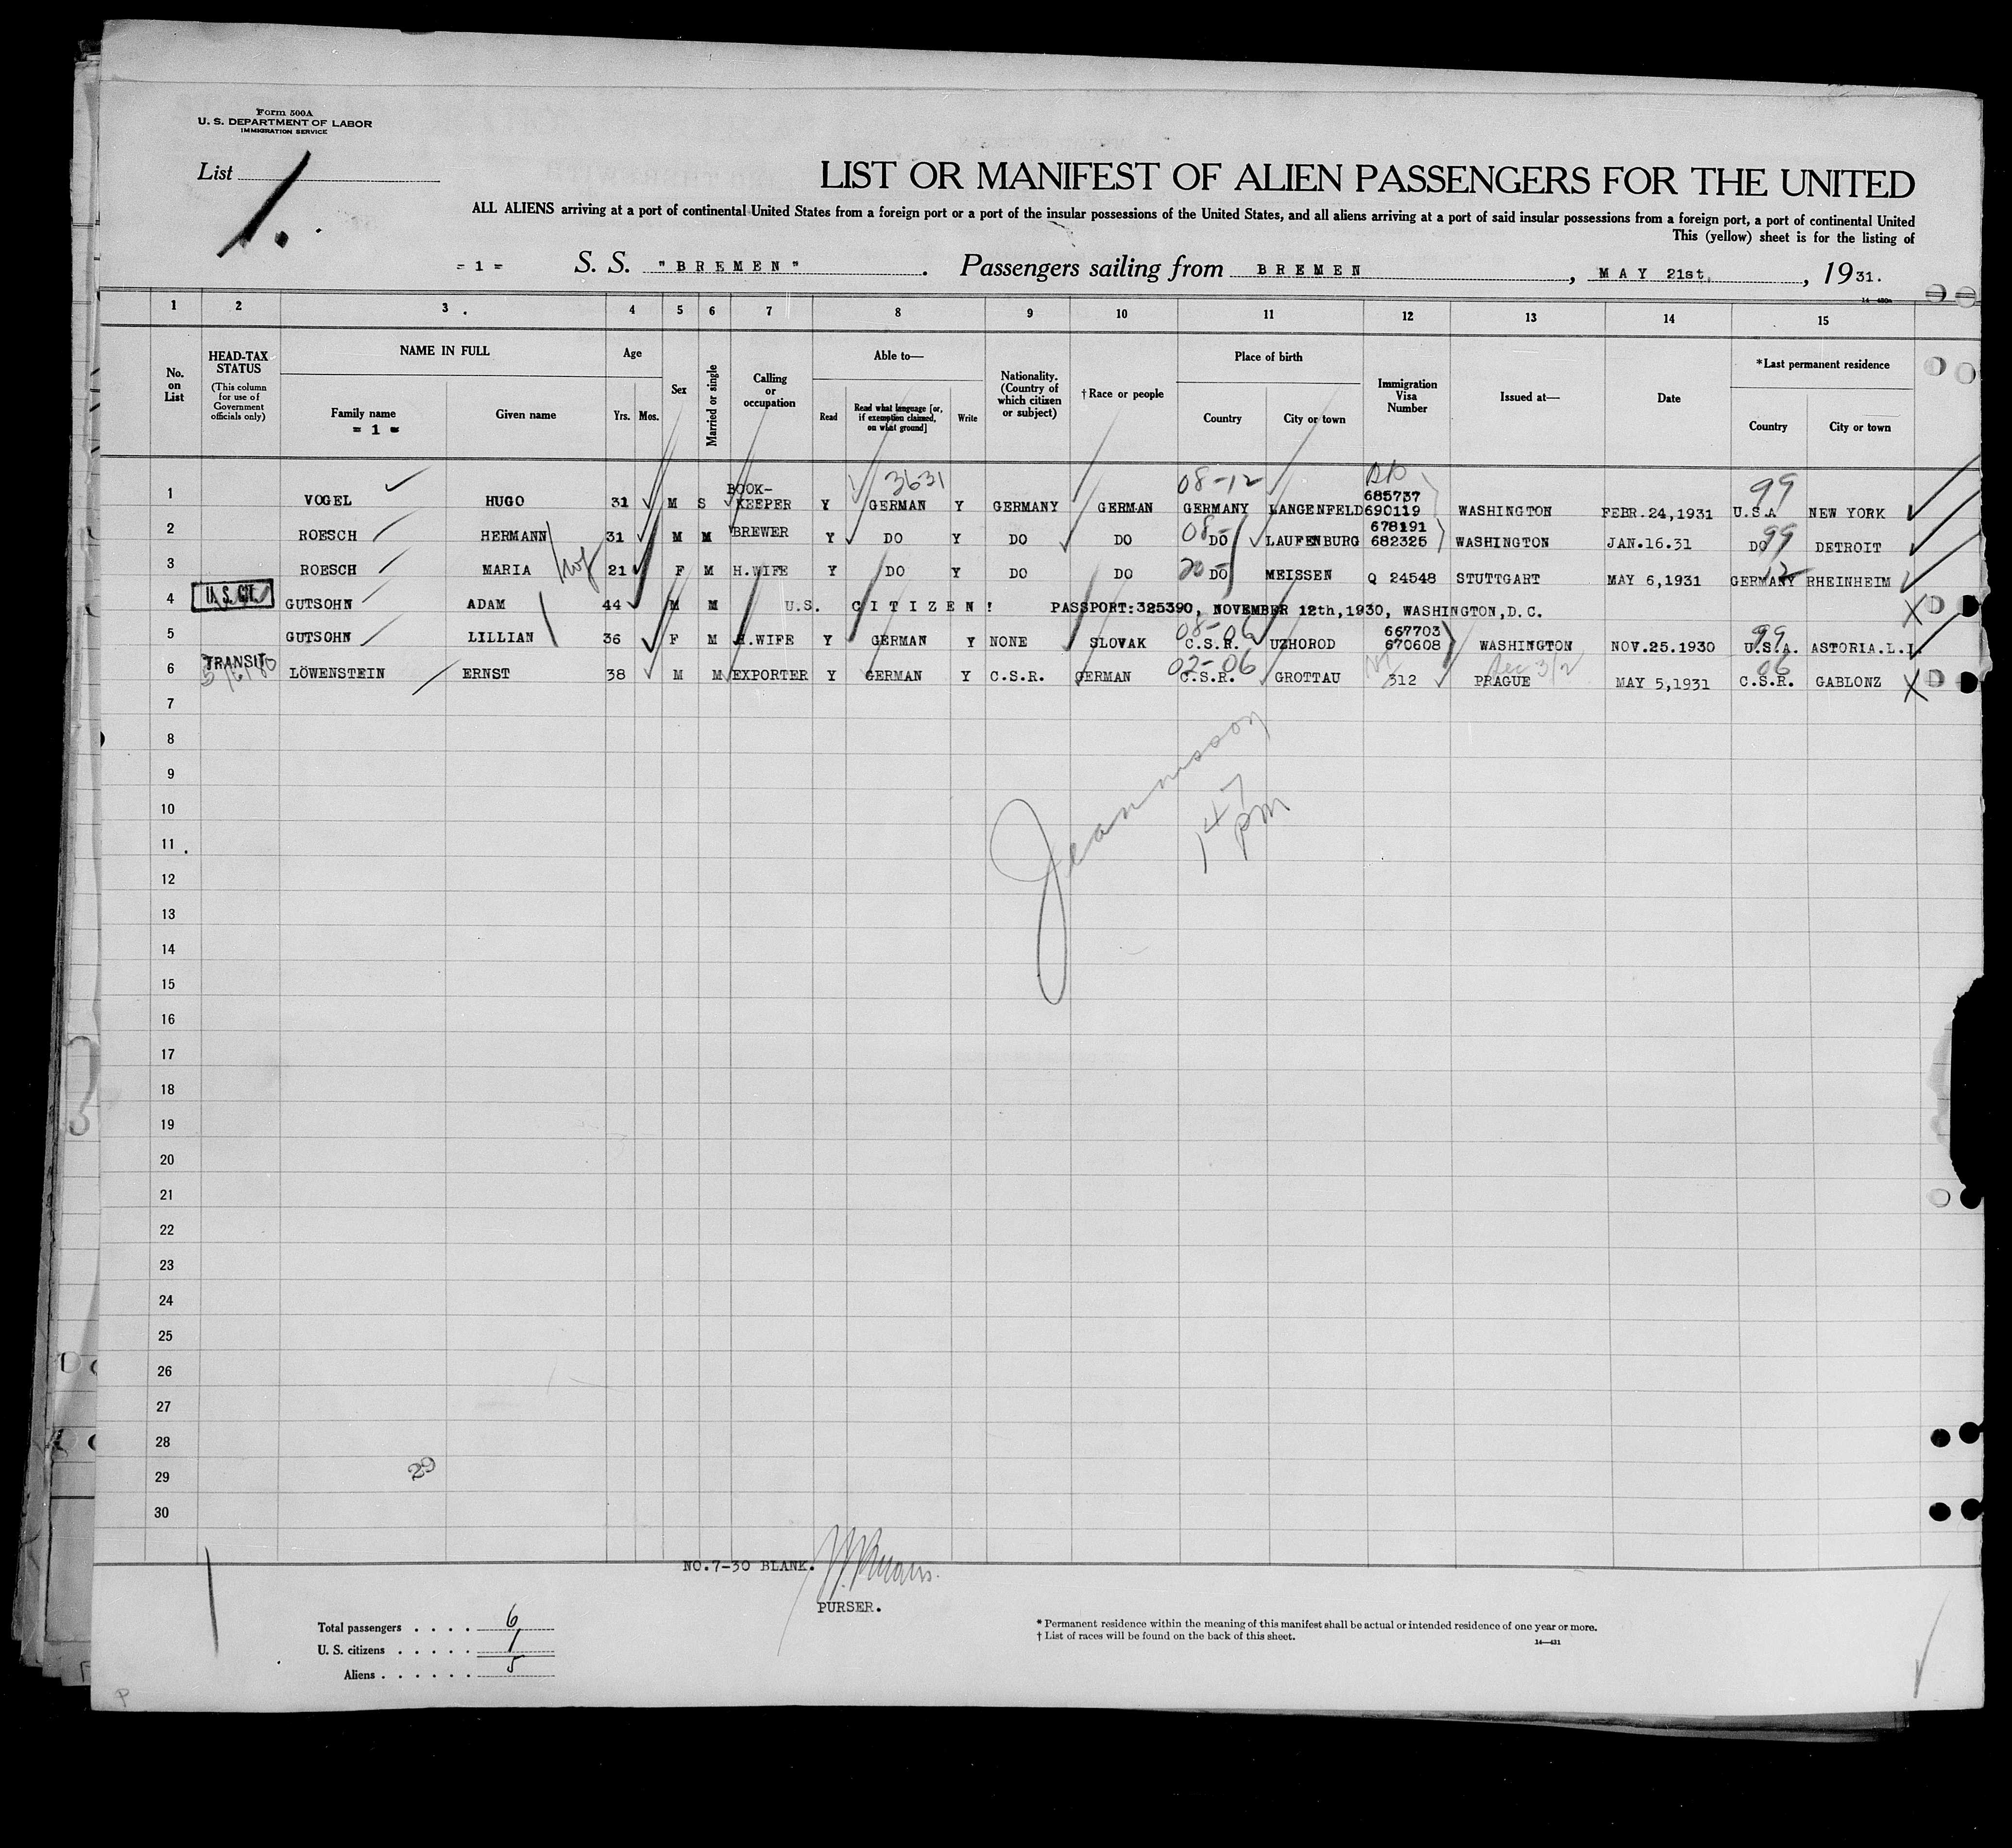 Form 500A
U. S. DEPARTMENT OF LABOR
IMMIGRATION SERVICE
List 1.
LIST OR MANIFEST OF ALIEN PASSENGERS FOR THE UNITED
ALL ALIENS arriving at a port of continental United States from a foreign port or a port of the insular possessions of the United States, and all aliens arriving at a port of said insular possessions from a foreign port, a port of continental United
This (yellow) sheet is for the listing of
= 1 = S. S. "BREMEN". Passengers sailing from BREMEN, MAY 21st, 1931.
14—430a
1 2 3 4 5 6 7 8 9 10 11 12 13 14 15
No. on List
HEAD-TAX STATUS (This column for use of Government officials only)
NAME IN FULL
Family name = 1 = Given name
Age Yrs. Mos.
Sex
Married or single
Calling or occupation
Able to— Read Read what language [or, if exemption claimed, on what ground] Write
Nationality. (Country of which citizen or subject)
† Race or people
Place of birth Country City or town
Immigration Visa Number
Issued at—
Date
*Last permanent residence Country City or town
3631 08-12 99
1 VOGEL HUGO 31 M S BOOK-KEEPER Y GERMAN Y GERMANY GERMAN GERMANY LANGENFELD 685737 690119 WASHINGTON FEBR.24,1931 U.S.A NEW YORK
2 ROESCH HERMANN 31 M M BREWER Y DO Y DO DO 08- DO LAUFENBURG 678191 682325 WASHINGTON JAN.16.31 DO 99 DETROIT
3 ROESCH MARIA 21 F M H.WIFE Y DO Y DO DO 20- DO MEISSEN Q 24548 STUTTGART MAY 6,1931 GERMANY 12 RHEINHEIM
4 U.S. CIT. GUTSOHN ADAM 44 M M U.S. CITIZEN! PASSPORT:325390, NOVEMBER 12th,1930, WASHINGTON,D.C.
5 GUTSOHN LILLIAN 36 F M H.WIFE Y GERMAN Y NONE SLOVAK 08-06 C.S.R. UZHOROD 667703 670608 WASHINGTON NOV.25.1930 99 U.S.A. ASTORIA.L.I.
6 TRANSIT LÖWENSTEIN ERNST 38 M M EXPORTER Y GERMAN Y C.S.R. GERMAN 02-06 C.S.R. GROTTAU 312 PRAGUE Sec 3/2 MAY 5,1931 06 C.S.R. GABLONZ
7
8
9
10
11
12
13
14
15
16
17
18
19
20
21
22
23
24
25
26
27
28
29
30
147 pm
29
NO.7-30 BLANK.
PURSER.
Total passengers . . . . 6
U. S. citizens . . . . . 1
Aliens . . . . . . 5
* Permanent residence within the meaning of this manifest shall be actual or intended residence of one year or more.
† List of races will be found on the back of this sheet.
14—431
P